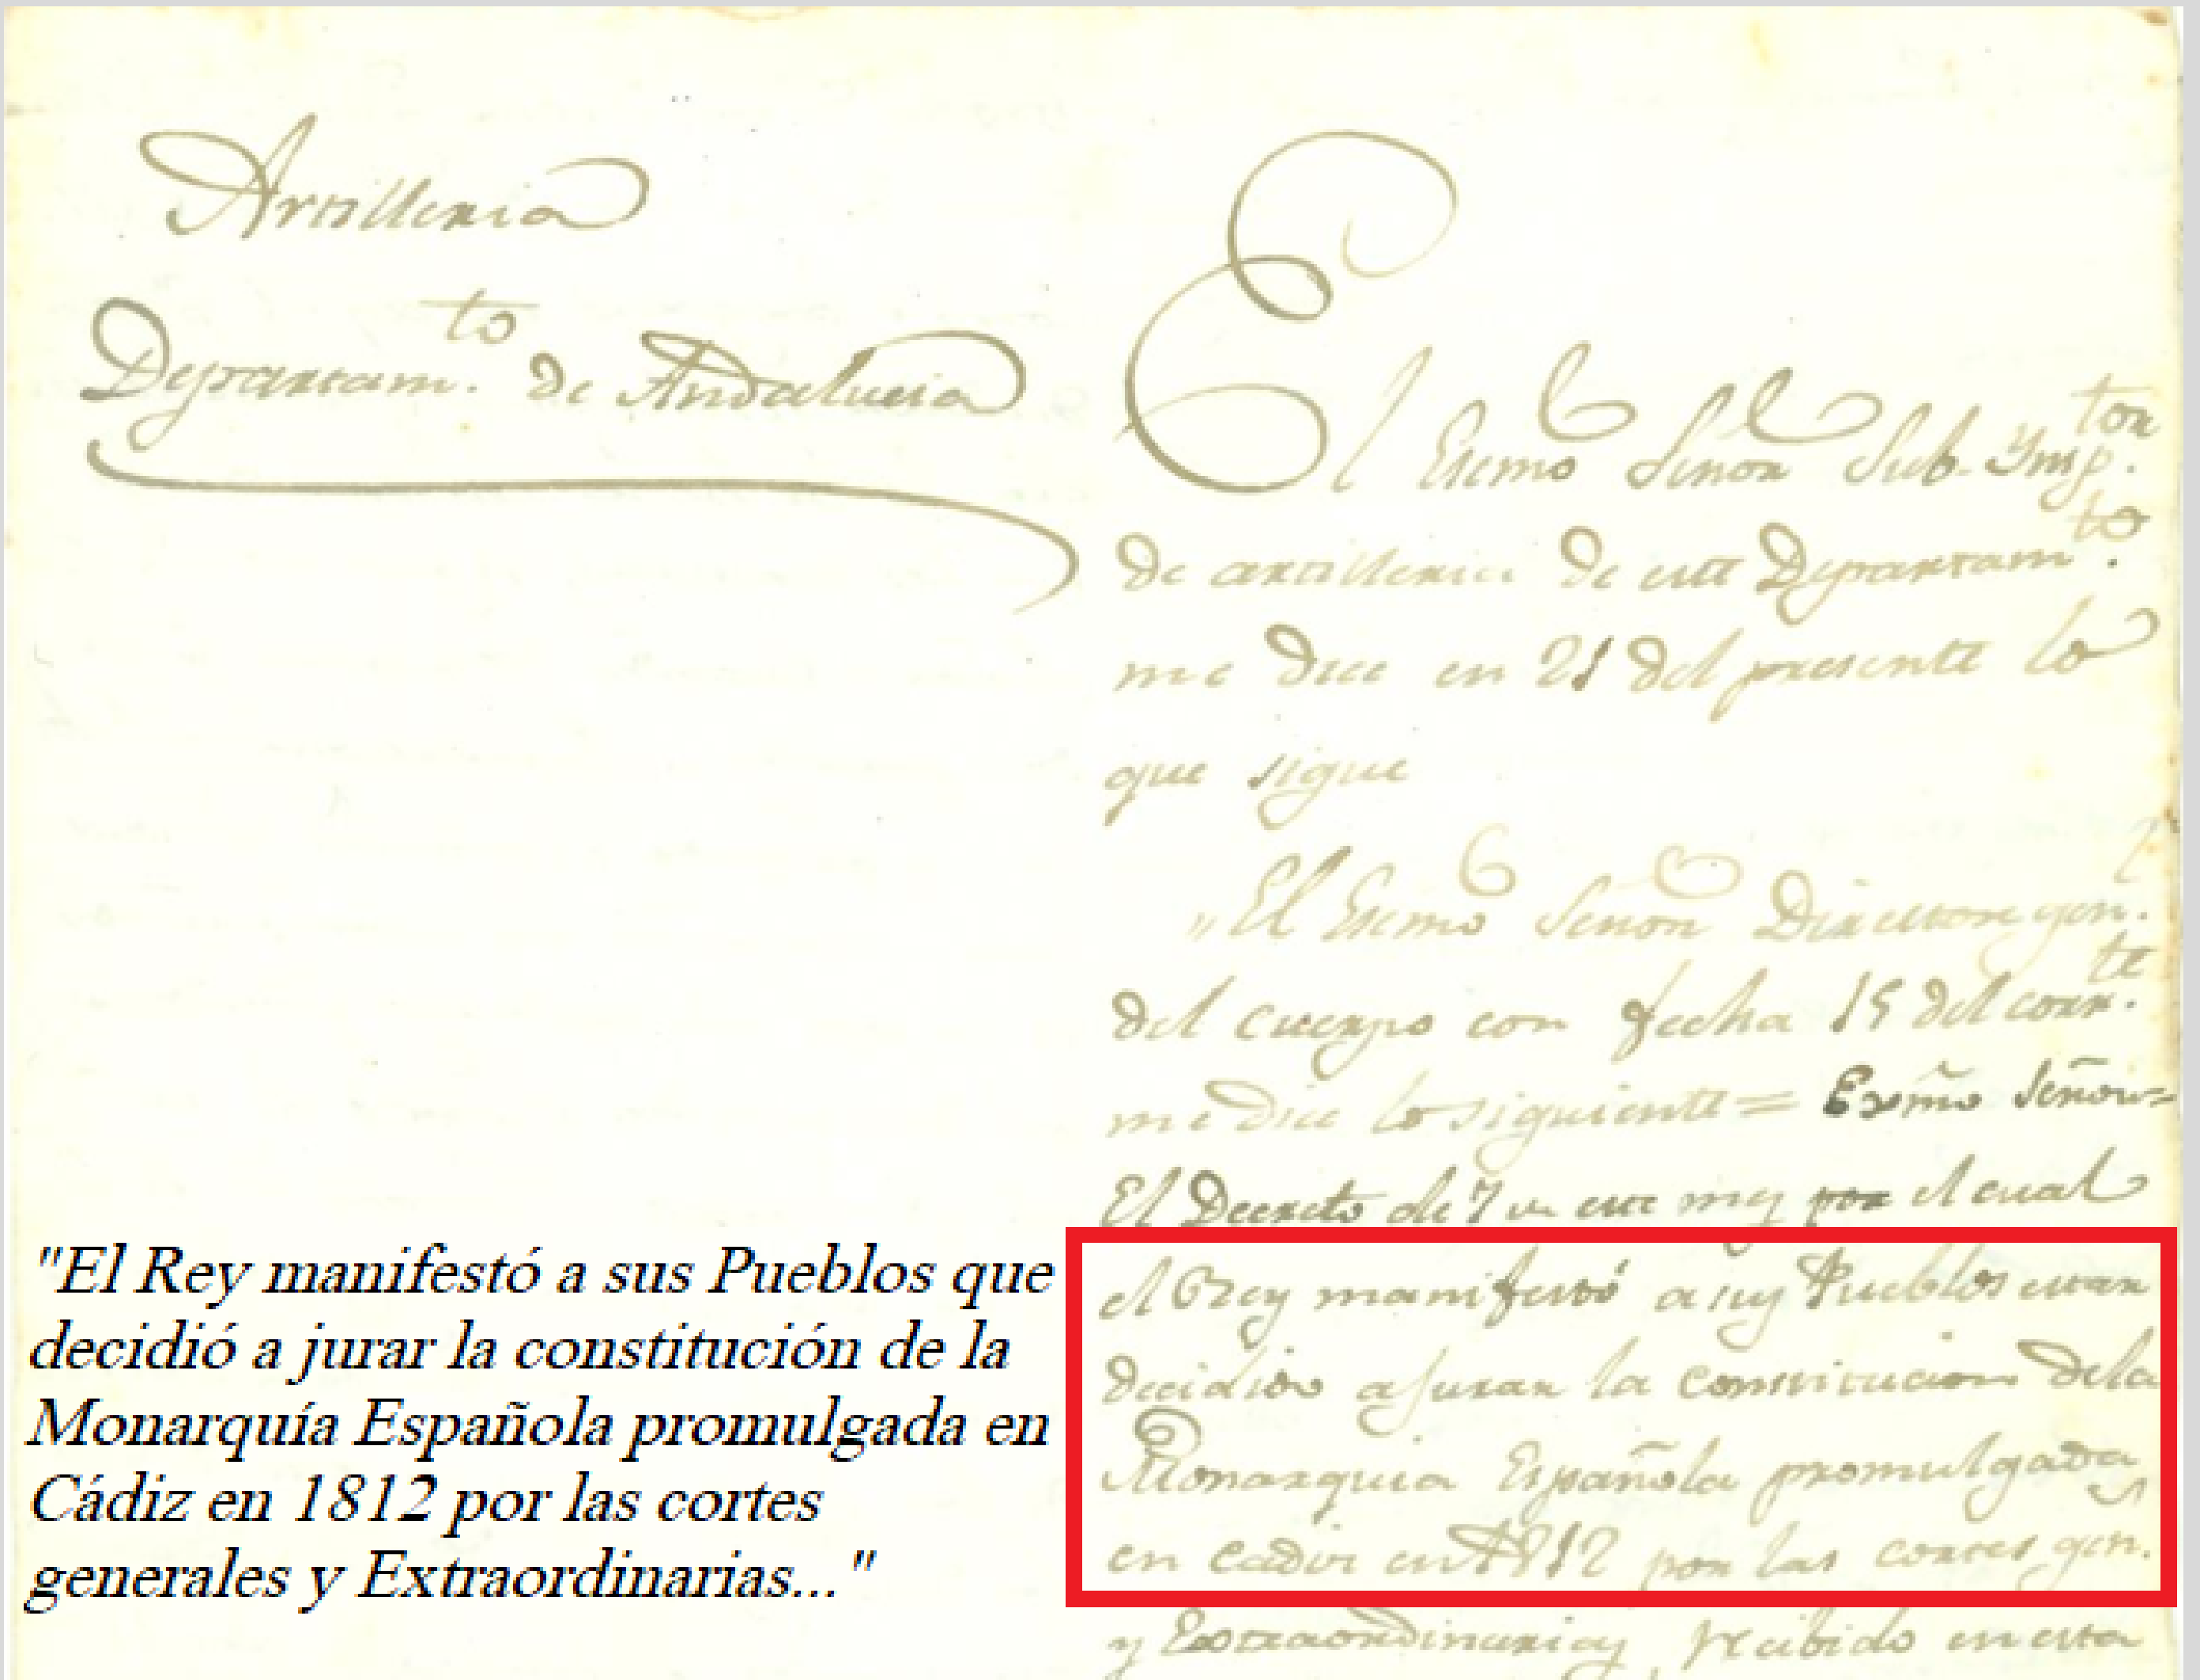 Artilleria
Departam.to de Andalucia
El Excmo Señor Sub-Ynsp.tor
de artilleria de este Departam.to
me dice en 21 del presente lo
que sigue
"El Excmo Señor Director gen.l
del cuerpo con fecha 15 del corr.te
me dice lo siguiente = Exmo Señor =
El Decreto de 7 de este mes por el cual
el Rey manifestó a sus Pueblos estar
decidido a jurar la constitucion dela
Monarquia Española promulgada
en Cadiz en 1812 por las cortes gen.s
y Extraordinarias, recibido en esta
"El Rey manifestó a sus Pueblos que
decidió a jurar la constitución de la
Monarquía Española promulgada en
Cádiz en 1812 por las cortes
generales y Extraordinarias..."